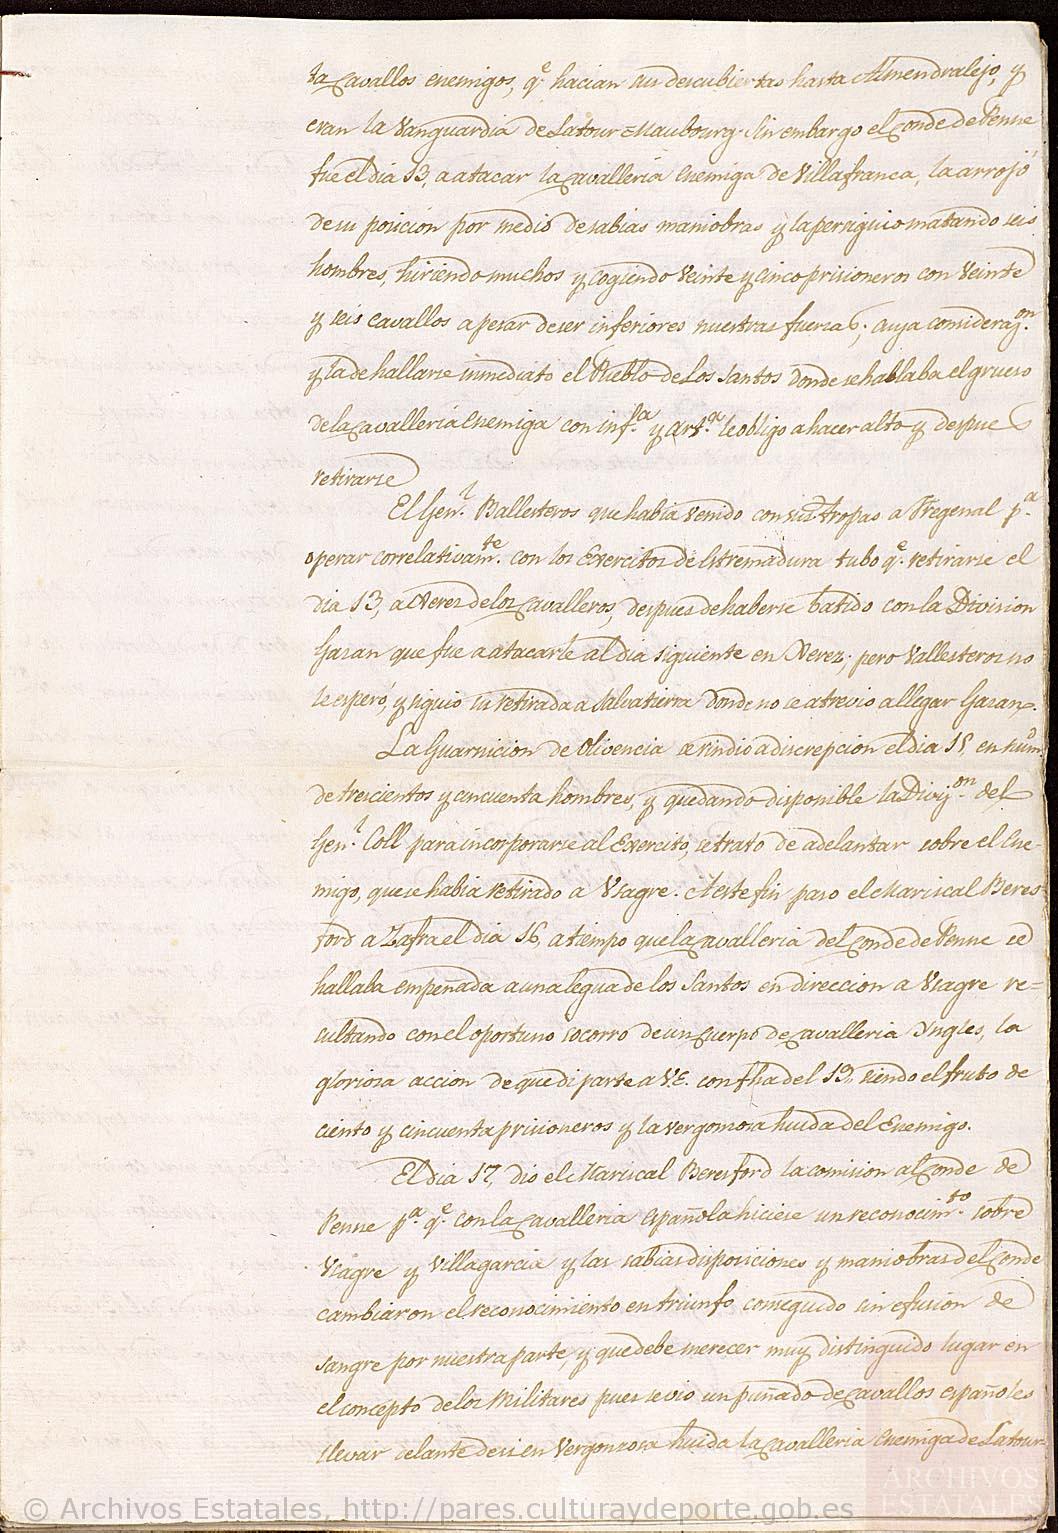 ta Cavallos enemigos, qᵉ. hacian sus descubiertas hasta Almendralejo, y
eran la Vanguardia de Latour=Maubourg. Sin embargo el Conde de Penne
fue el dia 13, a atacar la Cavalleria enemiga de Villafranca, la arrojó
de su posicion por medio de sabias maniobras y la persiguio matando seis
hombres, hiriendo muchos y cogiendo Veinte y cinco prisioneros con Veinte
y seis cavallos a pesar de ser inferiores nuestras fuerzas; cuya consideraz.ᵒⁿ
y la de hallarse inmediato el Pueblo de Los Santos donde se hallaba el grueso
de la Cavalleria Enemiga con inf.ᵃ y Art.ᵃ le obligo a hacer alto y despues
retirarse
El Gen.ˡ Ballesteros que habia venido con sus tropas a Fregenal p.ᵃ
operar correlativam.ᵗᵉ con los Exercitos de Estremadura tubo qᵉ. retirarse el
dia 13, a Xerez de los Cavalleros, despues de haberse batido con la Division
Gazan que fue a atacarle al dia siguiente en Xerez; pero Vallesteros no
le esperó, y siguio su retirada a Salvatierra donde no se atrevio a llegar Gazan.
La Guarnicion de Olivencia se rindio a discrepcion el dia 15, en num.º
de trescientos y cincuenta hombres, y quedando disponible la Divis.ᵒⁿ del
Gen.ˡ Coll para incorporarse al Exercito, se trato de adelantar sobre el Ene-
migo, que se habia retirado a Vsagre. A este fin paso el Mariscal Beres-
ford a Zafra el dia 16, a tiempo que la Cavalleria del Conde de Penne se
hallaba empeñada a una legua de los Santos en direccion a Vsagre re=
sultando con el oportuno socorro de un Cuerpo de Cavalleria Yngles, la
gloriosa accion de que di parte a V.E. con fha del 19, siendo el fruto de
ciento y cincuenta prisioneros y la vergonosa huida del Enemigo.
El dia 17, dio el Mariscal Beresford la comision al Conde de
Penne p.ᵃ qᵉ. con la Cavalleria española hiciese un reconocim.ᵗᵒ sobre
Vsagre y Villagarcia y las sabias disposiciones y maniobras del Conde
cambiaron el reconocimiento en triunfo conseguido sin efusion de
sangre por nuestra parte, y que debe merecer muy distinguido lugar en
el concepto de los Militares pues se vio un puñado de Cavallos españoles
llevar delante de si en Vergonzosa huida la Cavalleria Enemiga de Latour
ARCHIVOS
ESTATALES
© Archivos Estatales, http://pares.culturaydeporte.gob.es